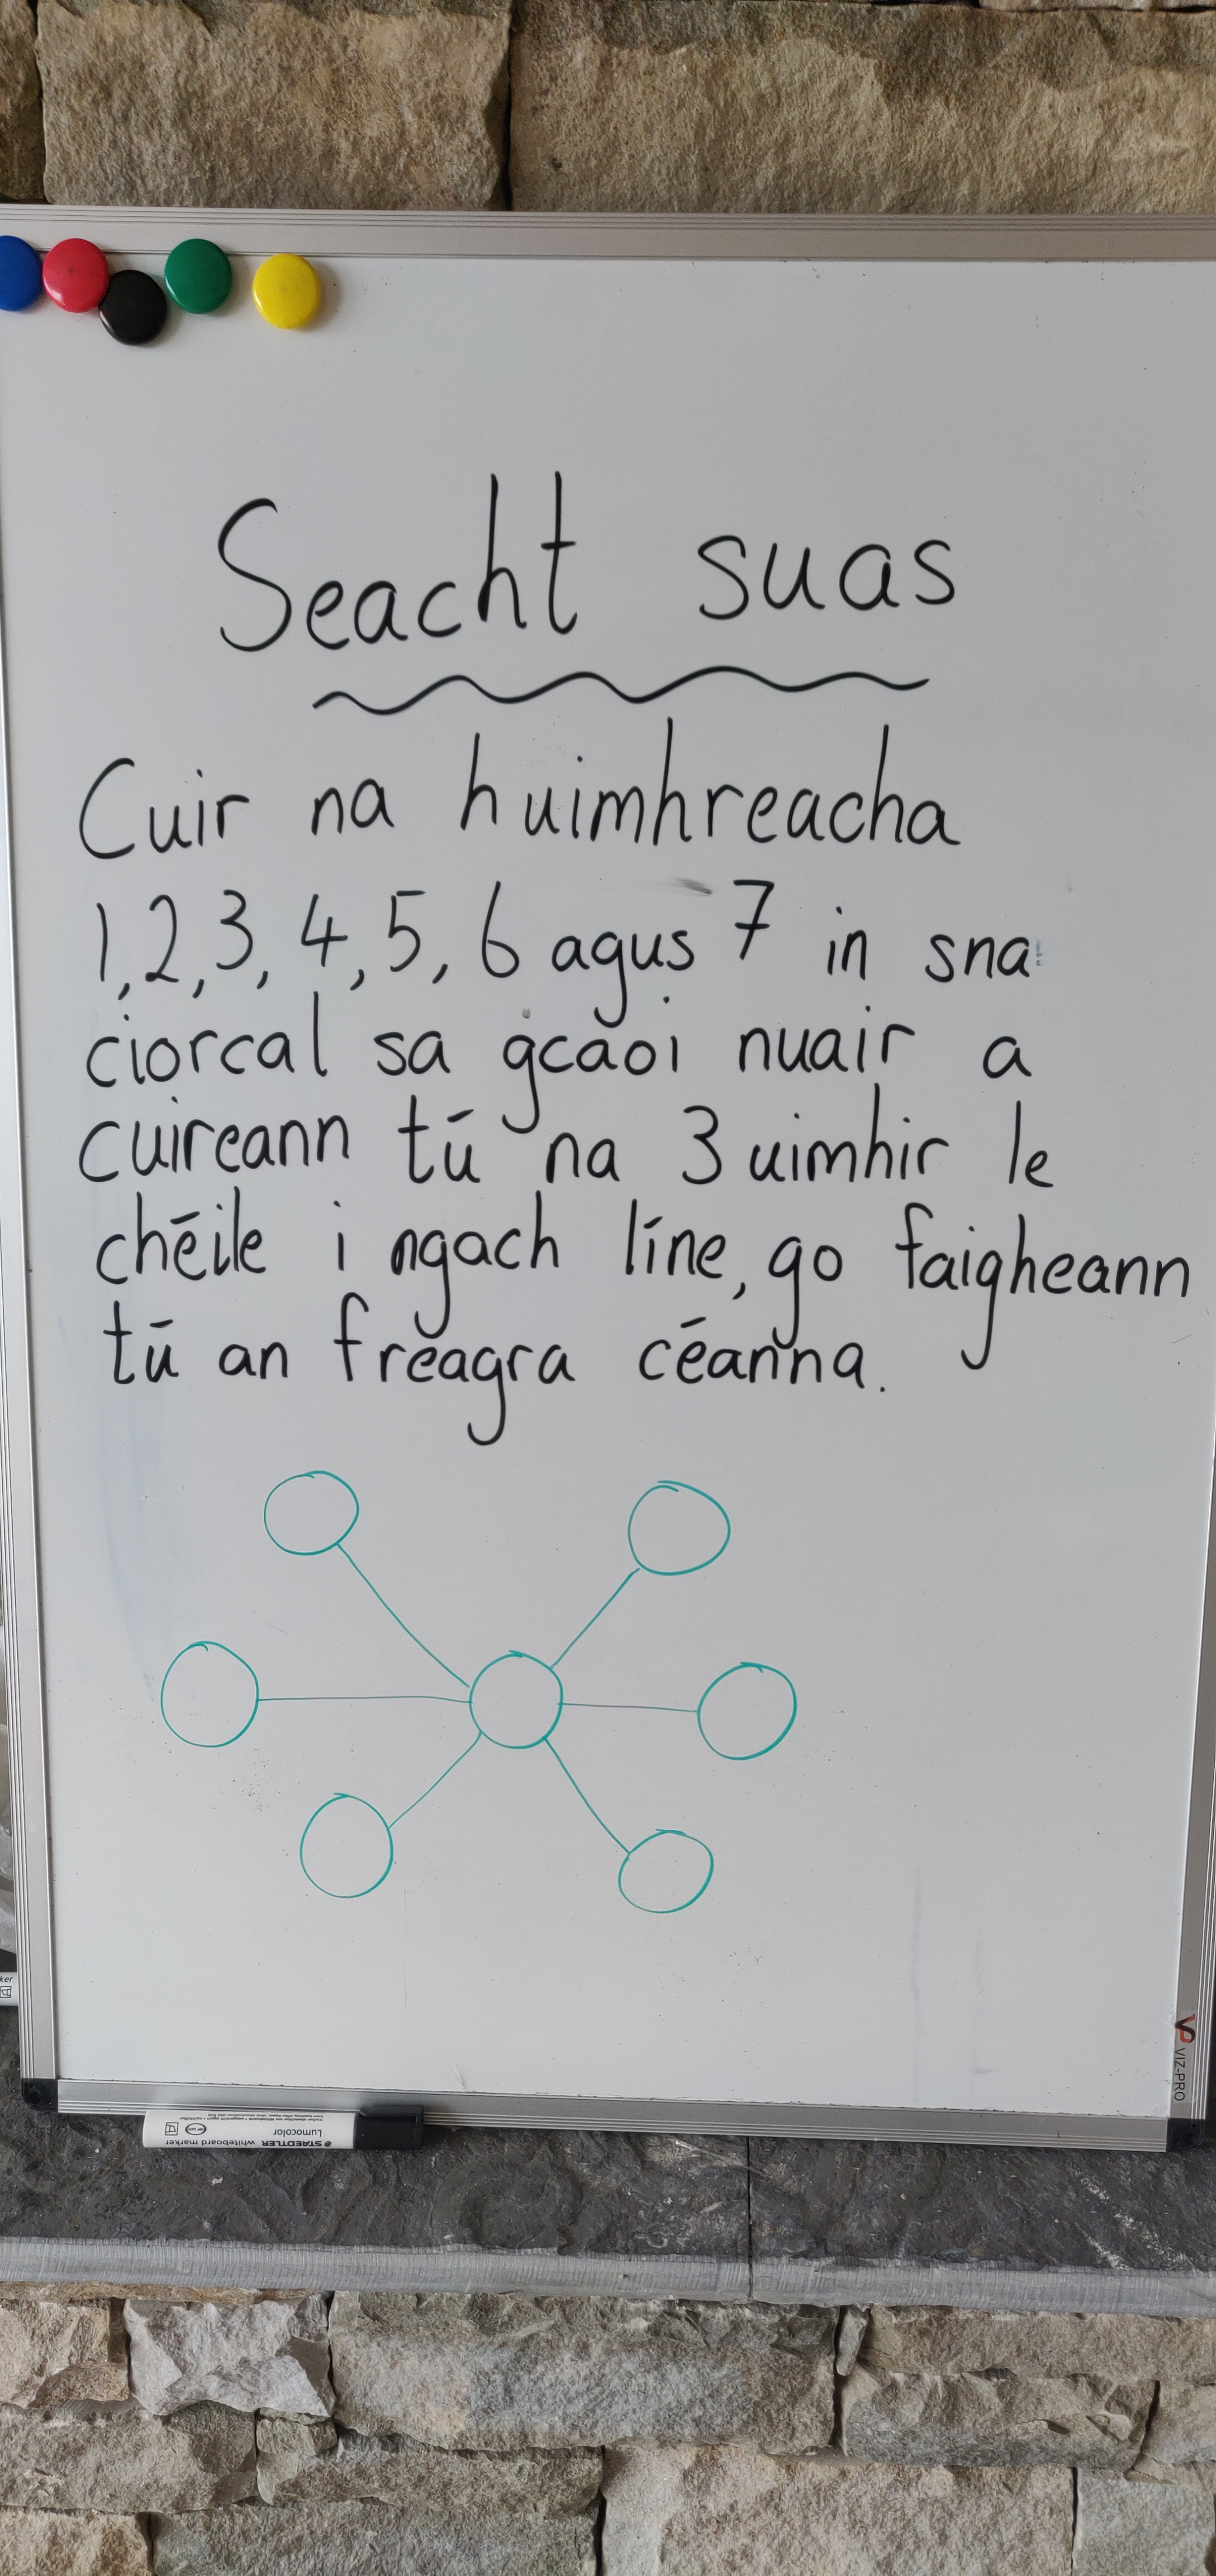 Seacht suas
Cuir na huimhreacha
1,2,3,4,5,6 agus 7 in sna
ciorcal sa gcaoi nuair a
cuireann tú na 3 uimhir le
chéile i ngach líne, go faigheann
tú an freagra céanna.
VIZ-PRO
STAEDTLER whiteboard marker
Lumocolor
ker